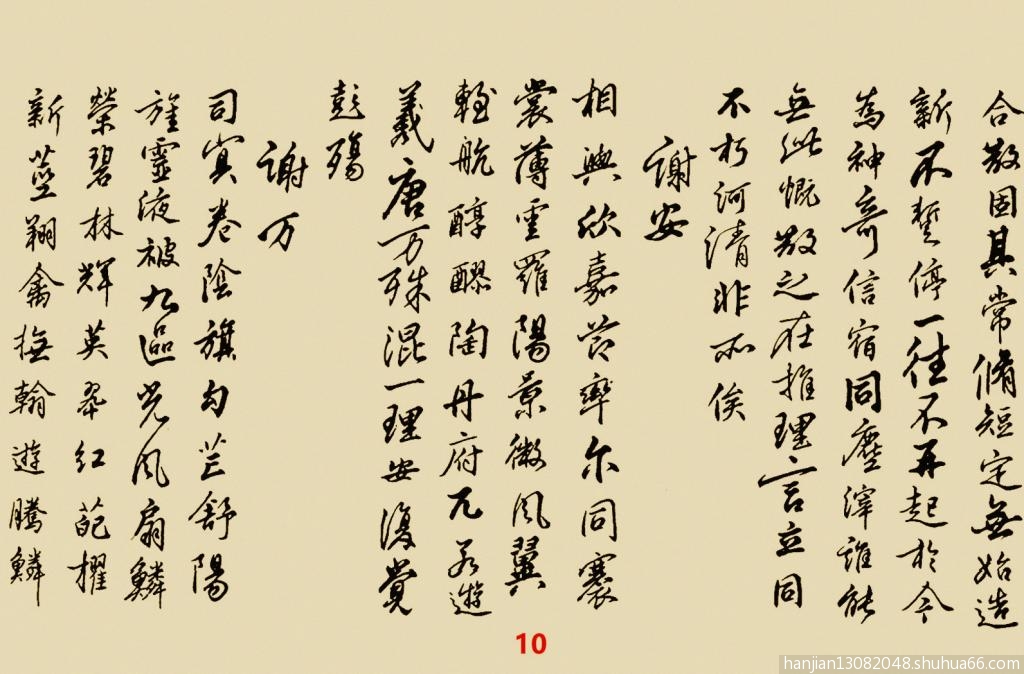 合散固其常脩短定無始造
新不暫停一往不再起於今
為神奇信宿同塵滓誰能
無此慨散之在推理言立同
不朽河清非所俟
謝安
相與欣嘉節率尔同褰
裳薄雲羅陽景微風翼
輕航醇醪陶丹府兀若遊
羲唐万殊混一理安復覺
彭殤
謝万
司冥卷陰旗勾芒舒陽
旌靈液被九區光風扇鱗
榮碧林輝英翠红葩擢
新莖翔禽撫翰遊騰鱗
10
hanjian13082048.shuhua66.com